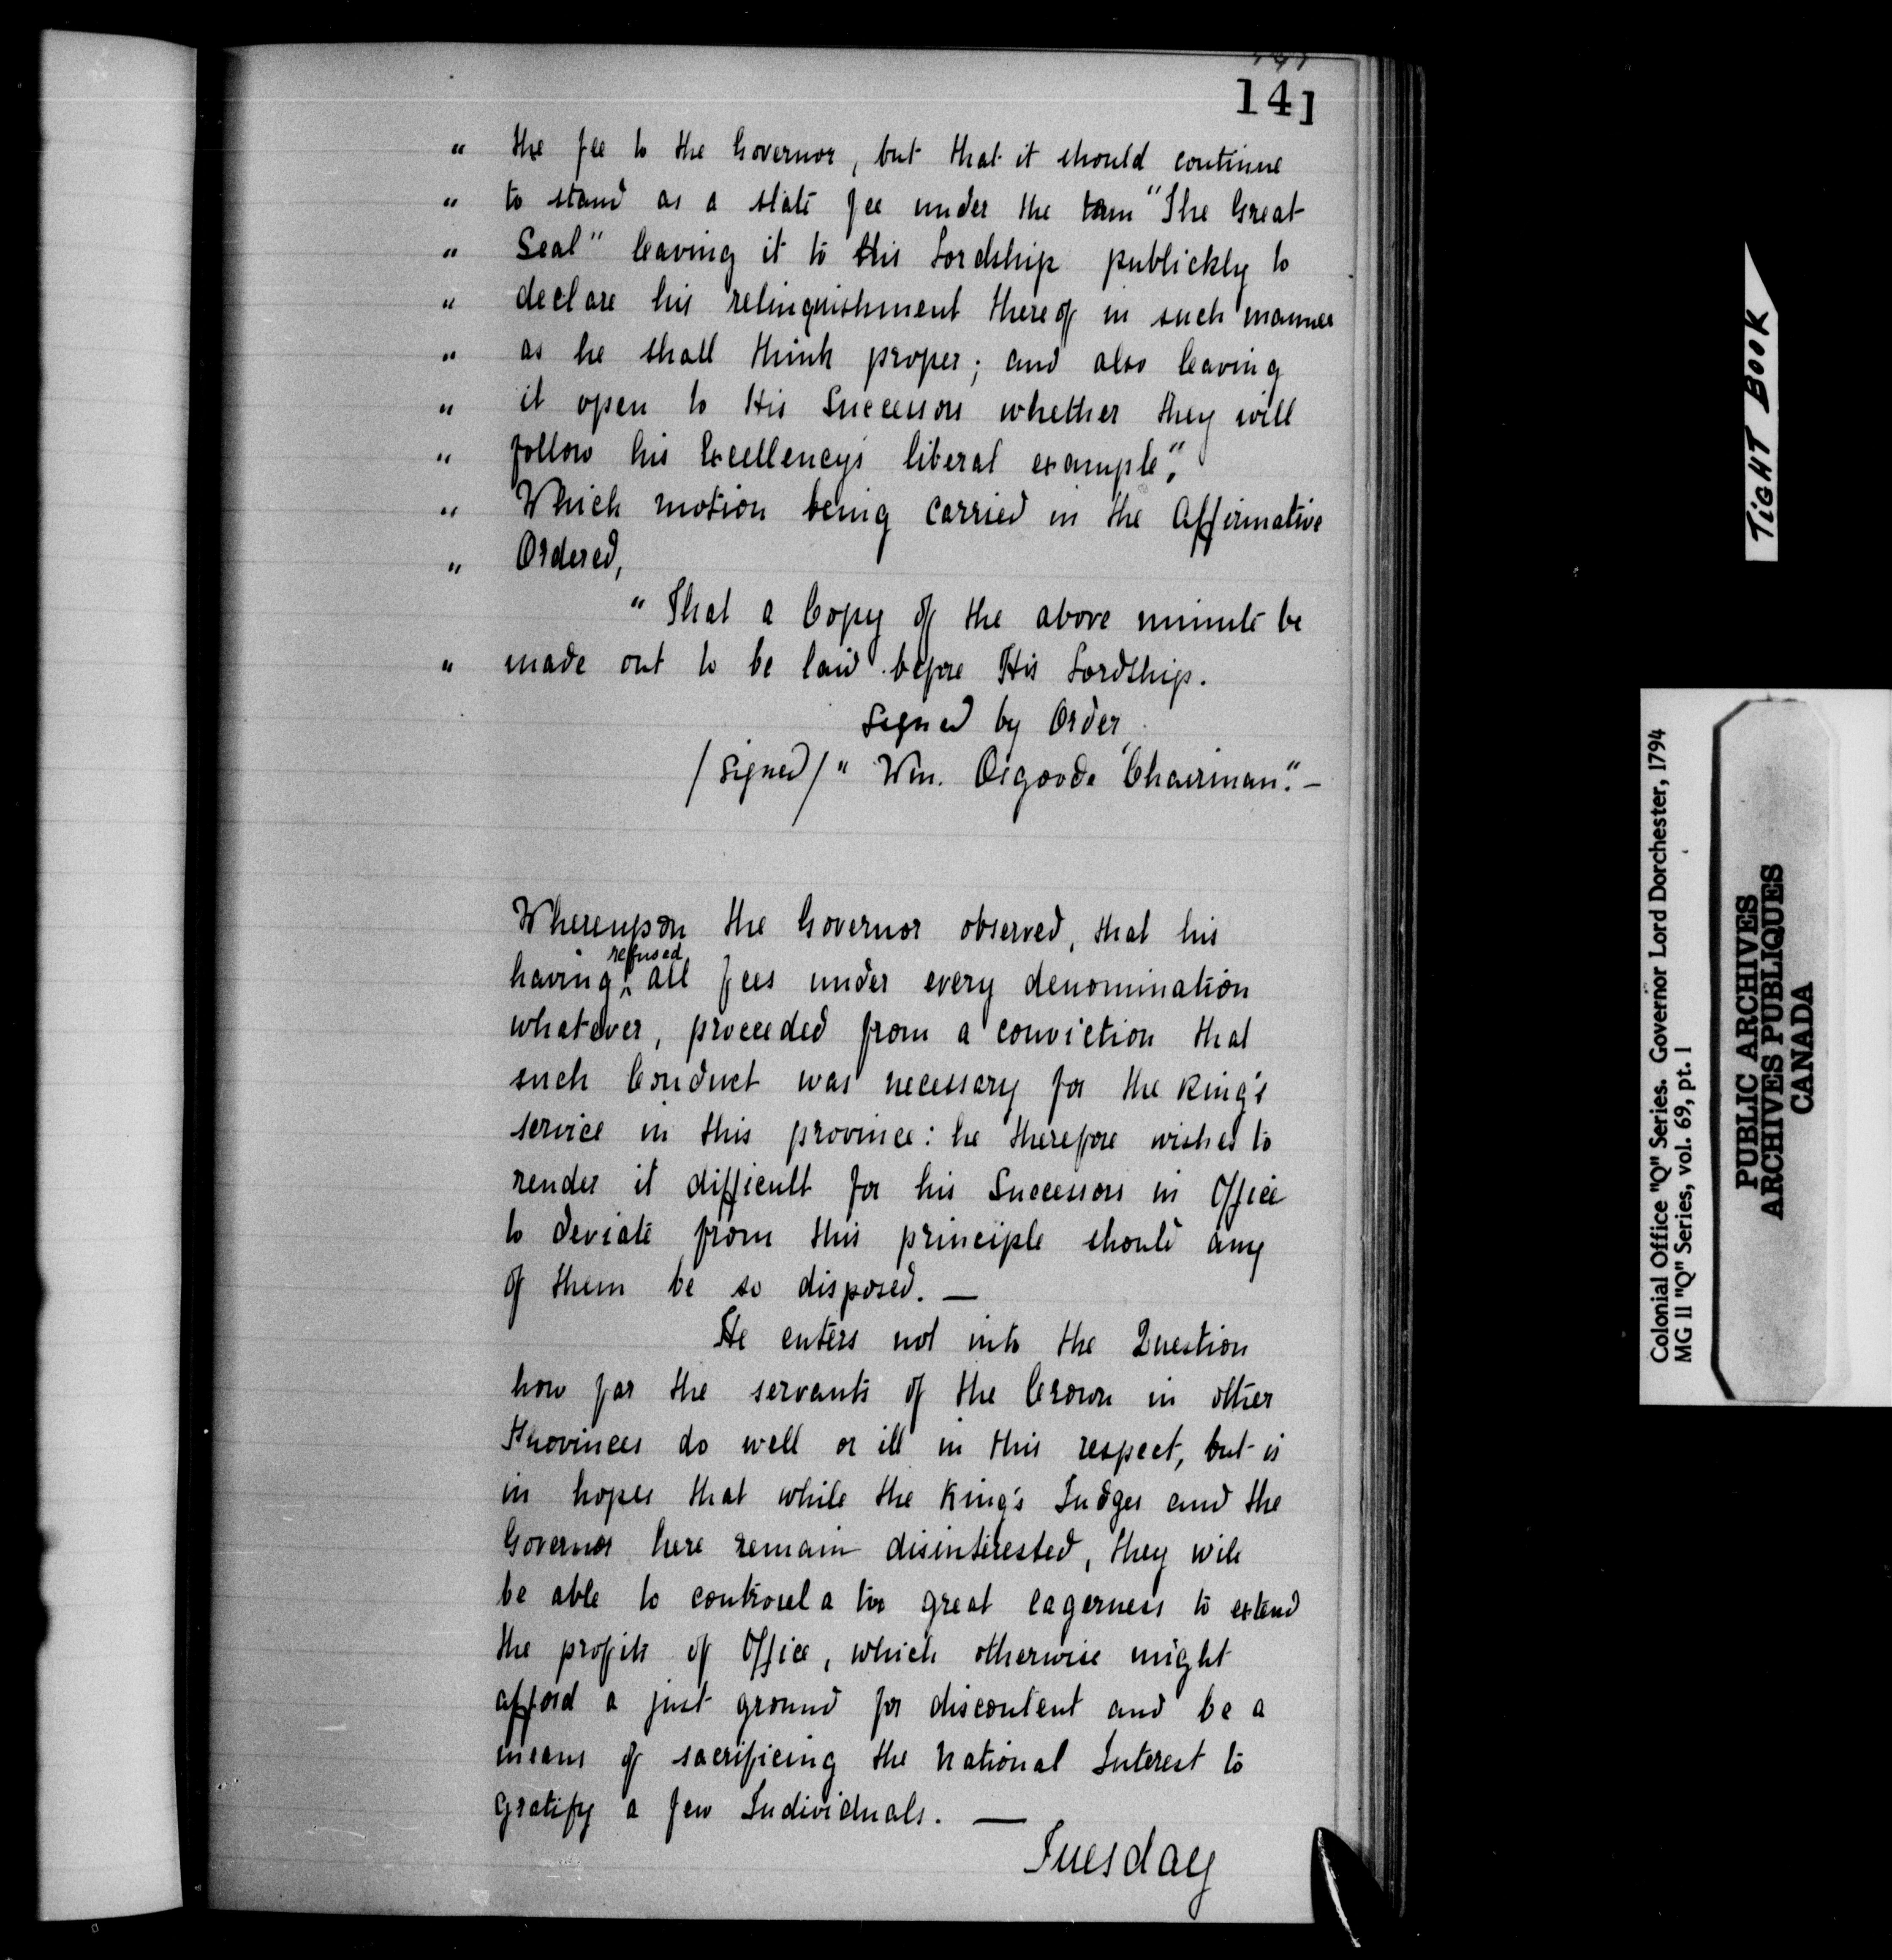 141
" the fee to the Governor, but that it should continue
" to stand as a state fee under the term "The Great
" Seal" leaving it to His Lordship publickly to
" declare his relinquishment thereof in such manner
" as he shall think proper; and also leaving
" it open to His Successors whether they will
" follow his Excellency's liberal example".
" Which motion being carried in the Affirmative
" Ordered,
" That a Copy of the above minute be
" made out to be laid before His Lordship.
Signed by Order
/Signed/ " Wm. Osgoode Chairman". –
Whereupon the Governor observed, that his
having refused all fees under every denomination
whatever, proceeded from a conviction that
such Conduct was necessary for the King's
service in this province: he therefore wishes to
render it difficult for his Successors in Office
to deviate from this principle should any
of them be so disposed. —
He enters not into the Question
how far the servants of the Crown in other
Provinces do well or ill in this respect, but is
in hopes that while the King's Judges and the
Governor here remain disinterested, they will
be able to controul a too great eagerness to extend
the profits of Office, which otherwise might
afford a just ground for discontent and be a
means of sacrificing the National Interest to
gratify a few Individuals. —
Tuesday
TIGHT BOOK
Colonial Office "Q" Series. Governor Lord Dorchester, 1794
MG 11 "Q" Series, vol. 69, pt. 1
PUBLIC ARCHIVES
ARCHIVES PUBLIQUES
CANADA